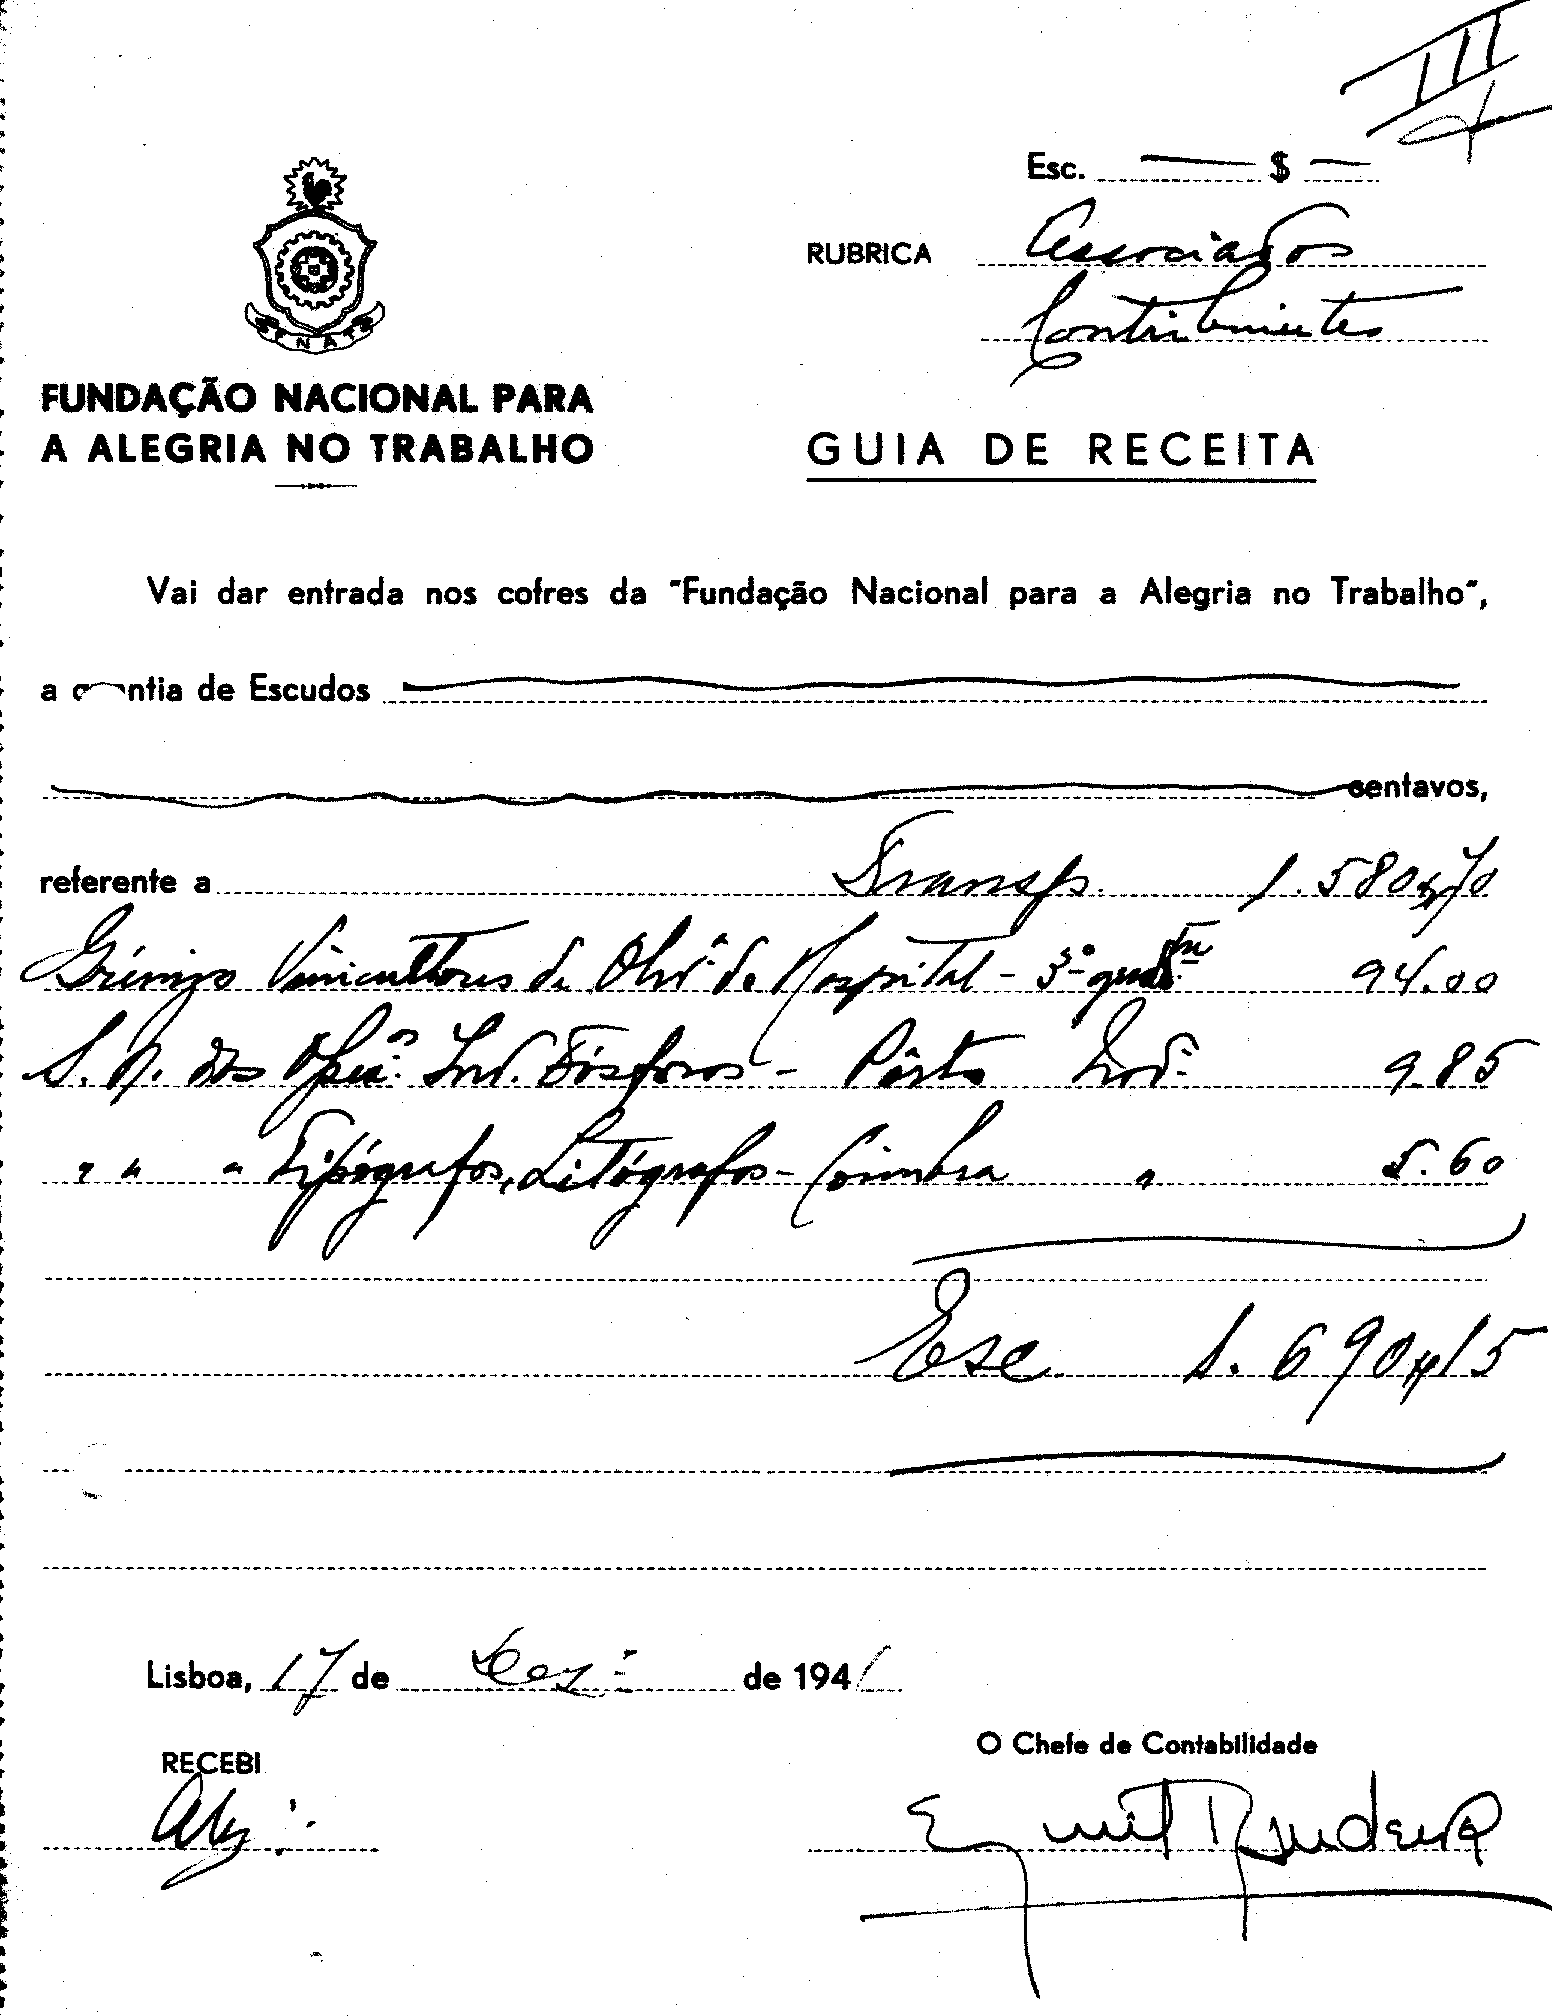 III
Esc. — $ —
RUBRICA Associados
Contribuintes
F N A T
FUNDAÇÃO NACIONAL PARA
A ALEGRIA NO TRABALHO
GUIA DE RECEITA
Vai dar entrada nos cofres da "Fundação Nacional para a Alegria no Trabalho",
a quantia de Escudos
centavos,
referente a Transp. 1.580$70
Grémio Vinicultores de Olivª do Hospital - 3º 94.00
S. N. dos Operºs Ind. Fósforos - Pôrto Nov. 9.85
" " " Tipógrafos, Litógrafos - Coimbra " 5.60
Esc. 1.690$15
Lisboa, 17 de Dez. de 1941
RECEBI
O Chefe de Contabilidade